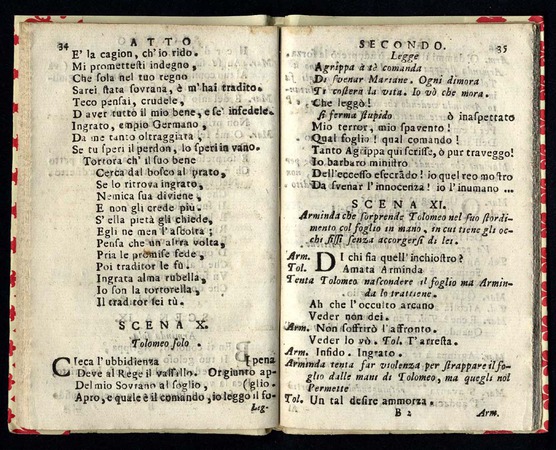 34 ATTO
E' la cagion, ch'io rido.
Mi promettesti indegno,
Che sola nel tuo regno
Sarei stata sovrana, è m' hai tradito.
Teco pensai, crudele,
D aver tutto il mio bene, e se' infedele.
Ingrato, empio Germano,
Da me tanto oltraggiata,
Se tu speri il perdon, lo speri in vano.
Tortora ch' il suo bene
Cerca dal bosco al prato,
Se lo ritrova ingrato,
Nemica sua diviene,
E non gli crede più.
S' ella pietà gli chiede,
Egli ne men l'ascolta;
Pensa che un altra volta,
Pria le promise fede,
Poi traditor le fù.
Ingrata alma rubella,
Io son la tortorella,
Il traditor sei tù.
SCENA X.
Tolomeo solo.
CIeca l'ubbidienza I pena
Deve al Rege il vassallo. Or giunto ap-
Del mio Sovrano al soglio, (glio.
Apro, e quale è il comando, io leggo il fo-
Leg-
SECONDO. 35
Legge
Agrippa à tè comanda
Di svenar Mariane. Ogni dimora
Ti costerà la vita. Io vò che mora.
Che leggò!
si ferma stupido ò inaspettato
Mio terror, mio spavento!
Qual foglio! qual comando!
Tanto Agrippa qui scrisse, ò pur traveggo!
Io barbaro ministro
Dell'eccesso esecrado! io quel reo mostro
Da svenar l'innocenza! io l'inumano ...
SCENA XI.
Arminda che sorprende Tolomeo nel suo stordi-
mento col foglio in mano, in cui tiene gli oc-
chi fissi senza accorgersi di lei.
Arm. DI chi fia quell'inchiostro?
Tol. Amata Arminda
Tenta Tolomeo nascondere il foglio ma Armin-
da lo trattiene.
Ah che l'occulto arcano
Veder non dei.
Arm. Non soffrirò l'affronto.
Veder lo vò. Tol. T'arresta.
Arm. Infido. Ingrato.
Arminda tenta far violenza per strappare il fo-
glio dalle mani di Tolomeo, ma quegli nol
Permette
Tol. Un tal desire ammorza.
B 2 Arm.